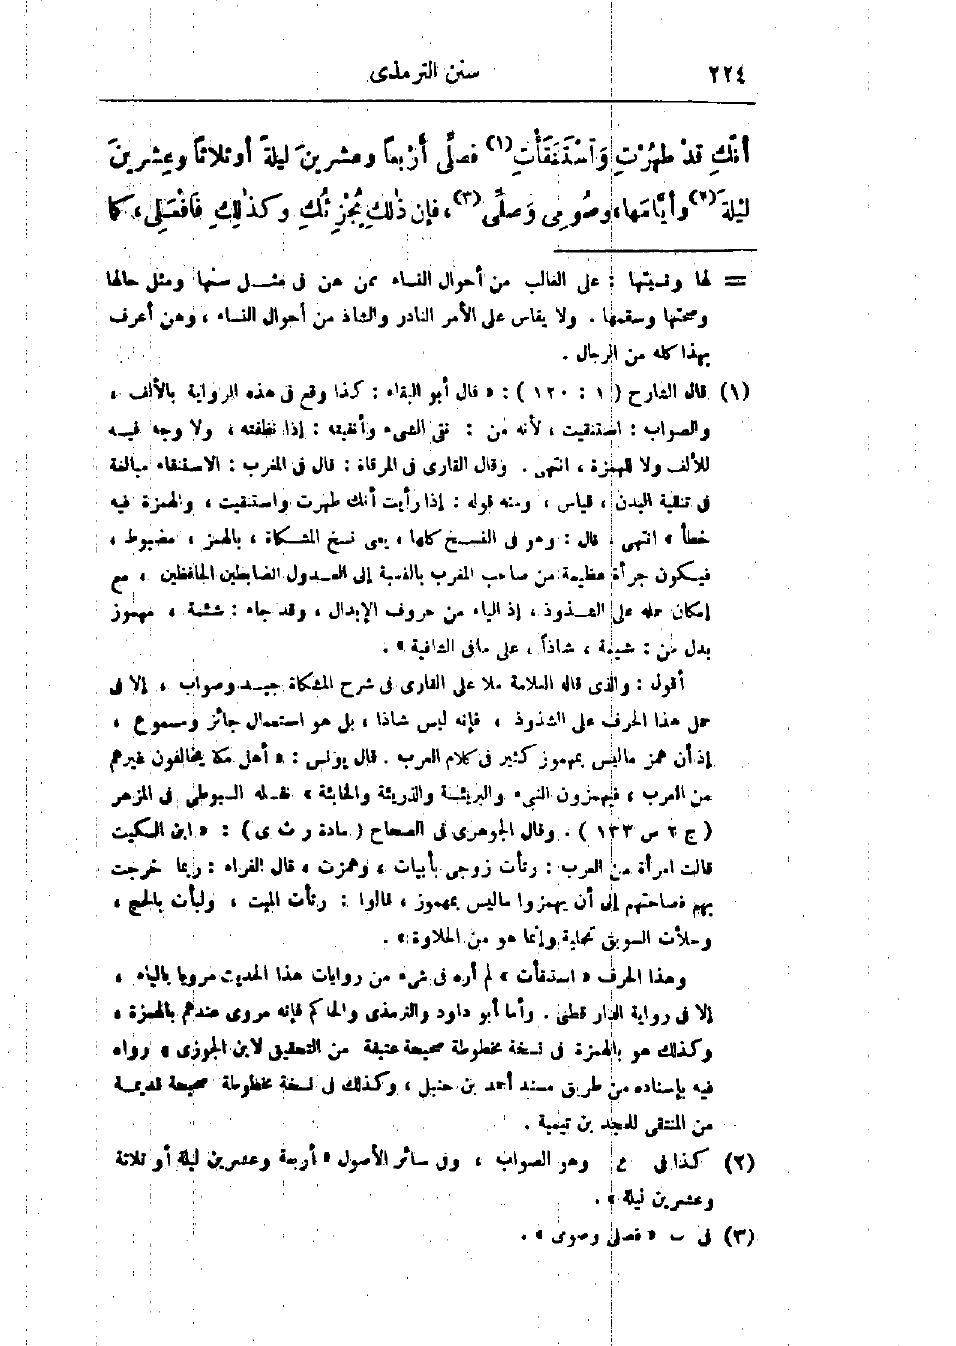 ٢٢٤ سنن الترمذى
أَنَّكِ قَدْ طَهُرْتِ وَاسْتَنْقَأْتِ(١) فصلِّى أَرْبعاً وعشرينَ ليلةً أو ثلاثاً وعِشرينَ
لَيْلةً(٢) وأيَّامَها، وصُومِى وَصلِّى(٣)، فإن ذٰلكِ يُجْزِئُكِ وكذٰلكِ فَافْعَلِى، كما
= لها ونسبتها : على الغالب من أحوال النساء ممن هن فى مثل سنها ومثل حالها
وصحتها وسقمها . ولا يقاس على الأمر النادر والشاذ من أحوال النساء ، وهن أعرف
بهذا كله من الرجال .
(١) قال الشارح ( ١ : ١٢٠ ) : « قال أبو البقاء : كذا وقع فى هذه الرواية بالألف ،
والصواب : استنقيت ، لأنه من : نقى الشىء وأنقيته : إذا نظفته ، ولا وجه فيه
للألف ولا للهمزة ، انتهى . وقال القارى فى المرقاة : قال فى المغرب : الاستنقاء مبالغة
فى تنقية البدن ، قياس ، ومنه قوله : إذا رأيت أنك طهرت واستنقيت ، والهمزة فيه
خطأ » انتهى ، قال : وهو فى النسخ كلها ، يعنى نسخ المشكاة ، بالهمز ، مضبوط ،
فيكون جرأة عظيمة من صاحب المغرب بالنسبة إلى العدول الضابطين الحافظين ، مع
إمكان حمله على الشذوذ ، إذ الياء من حروف الإبدال ، وقد جاء : شئمة ، مهموز
بدل من : شيمة ، شاذاً ، على مافى الشافية » .
أقول : والذى قاله العلامة ملا على القارى فى شرح المشكاة جيد وصواب ، إلا فى
حمل هذا الحرف على الشذوذ ، فإنه ليس شاذا ، بل هو استعمال جائز ومسموع ،
إذ أن همز ماليس بمهموز كثير فى كلام العرب . قال يونس : « أهل مكة يخالفون غيرهم
من العرب ، فيهمزون النبىء والبريئة والذريئة والخابئة » نقله السيوطى فى المزهر
( ج ٢ ص ١٣٣ ) . وقال الجوهرى فى الصحاح ( مادة ر ث ى ) : « ابن السكيت
قالت امرأة من العرب : رثأت زوجى بأبيات ، وهمزت ، قال الفراء : ربما خرجت
بهم فصاحتهم إلى أن يهمزوا ماليس بمهموز ، قالوا : رثأت الميت ، ولبأت بالحج ،
وحلأت السويق تحلية وإنما هو من الحلاوة » .
وهذا الحرف « استنقأت » لم أره فى شىء من روايات هذا الحديث مرويا بالياء ،
إلا فى رواية الدار قطنى . وأما أبو داود والترمذى والحاكم فإنه مروى عندهم بالهمزة ،
وكذلك هو بالهمزة فى نسخة مخطوطة صحيحة عتيقة من التحقيق لابن الجوزى ، رواه
فيه بإسناده من طريق مسند أحمد بن حنبل ، وكذلك فى نسخة مخطوطة صحيحة قديمة
من المنتقى للمجد بن تيمية .
(٢) كذا فى ع وهو الصواب ، وفى سائر الأصول « أربعة وعشرين ليلة أو ثلاثة
وعشرين ليلة » .
(٣) فى ب « فصلى وصومى » .